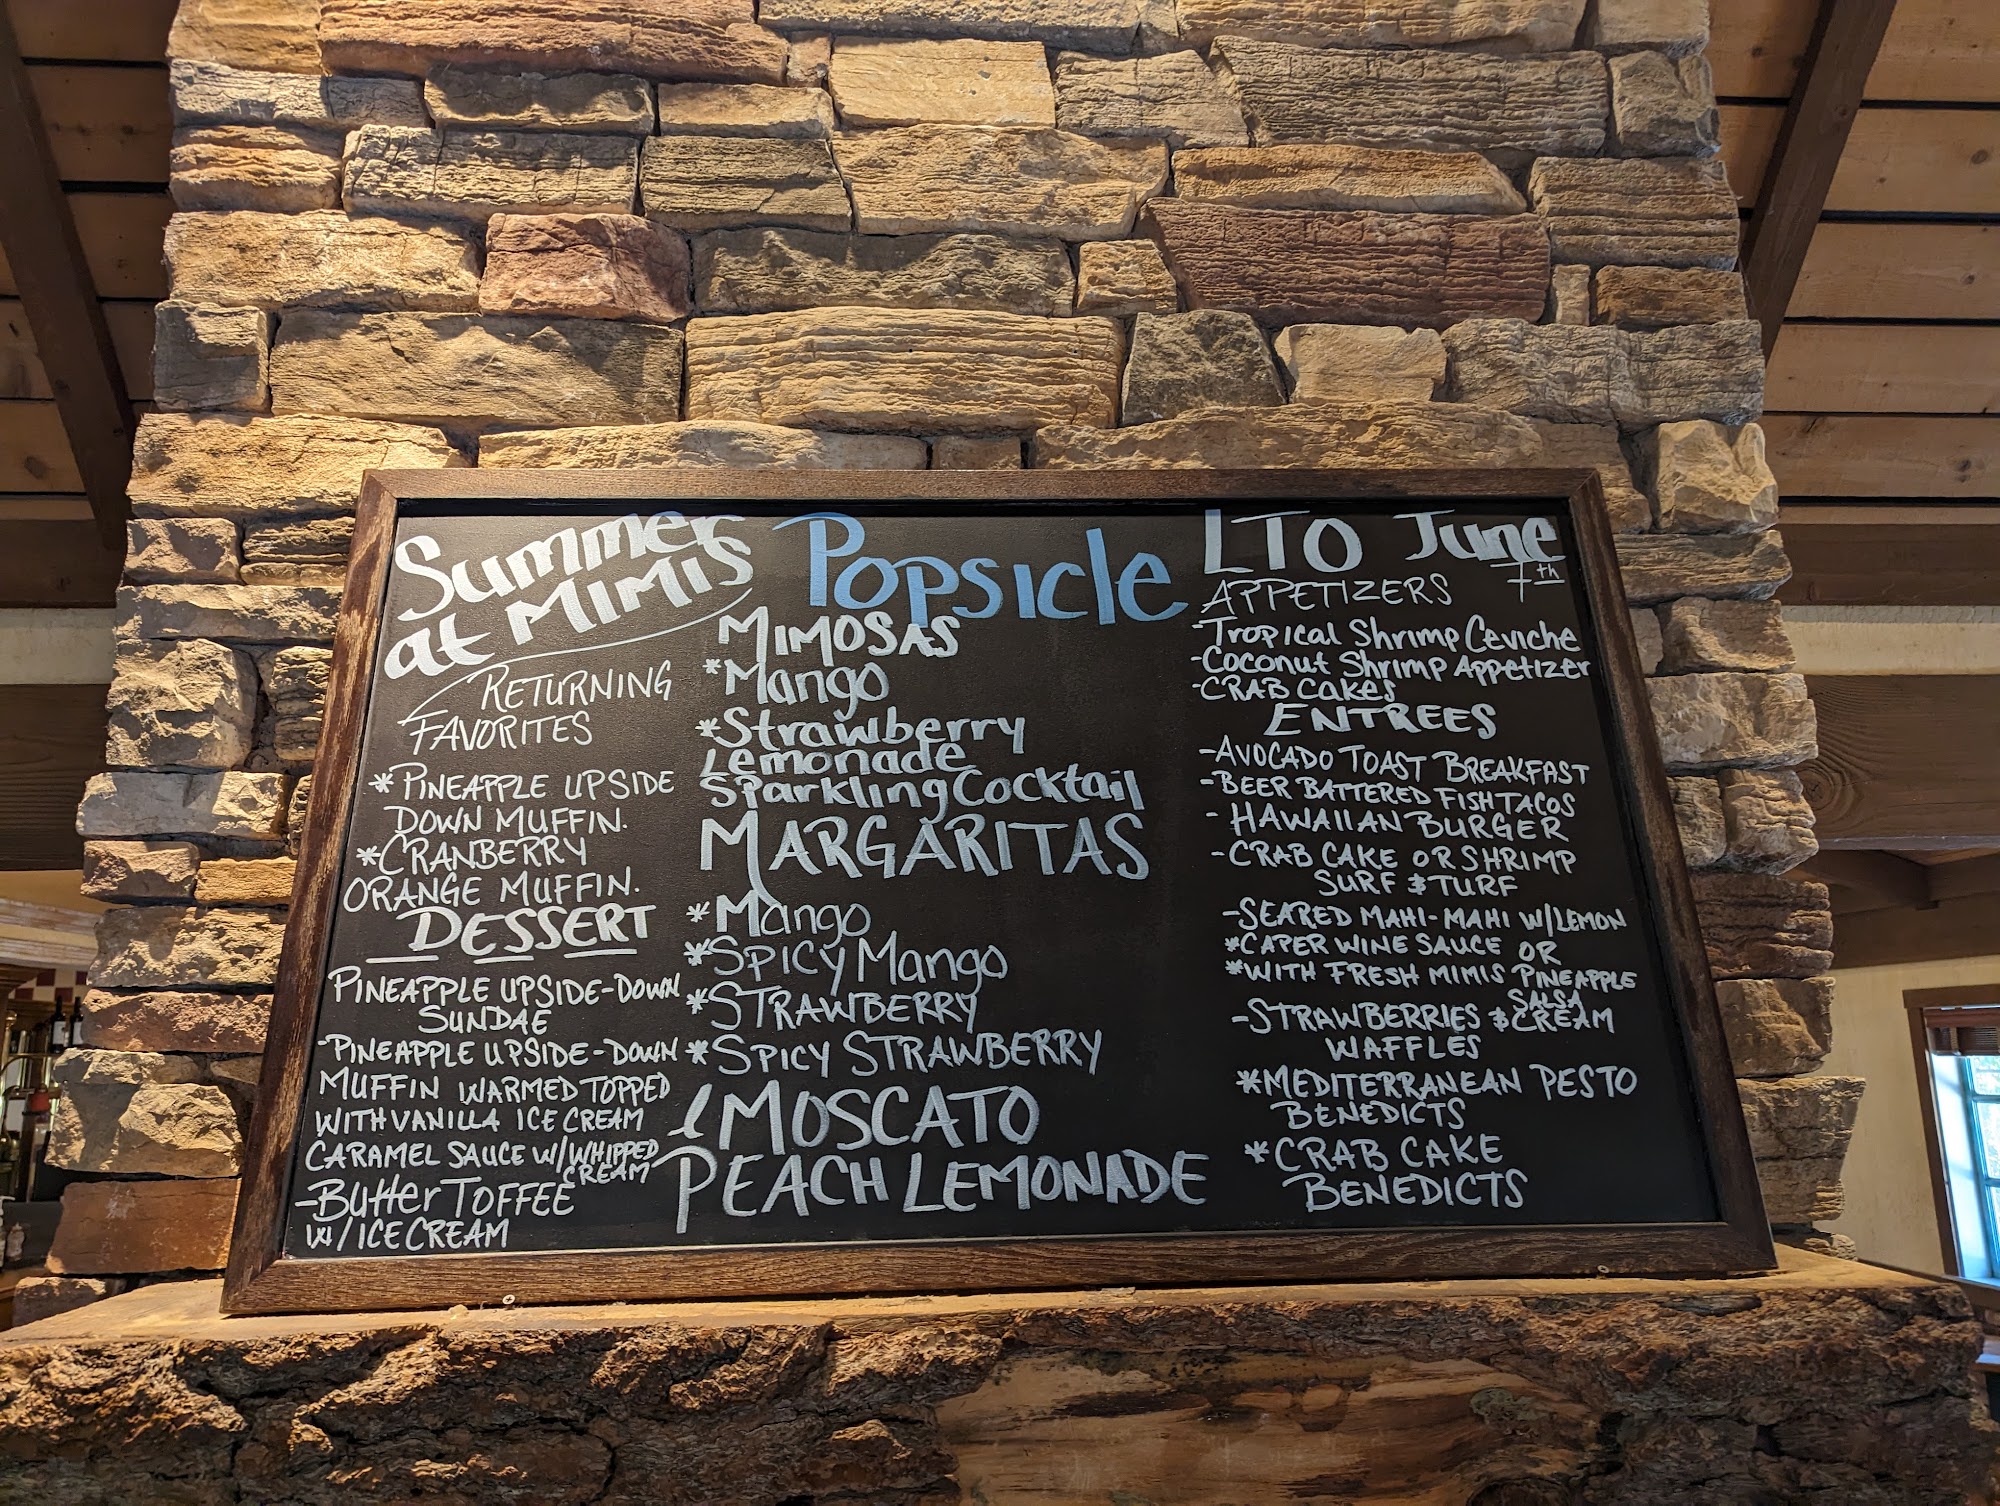 Summer
at MIMIS
RETURNING
FAVORITES
*PINEAPPLE UPSIDE
DOWN MUFFIN.
*CRANBERRY
ORANGE MUFFIN.
DESSERT
PINEAPPLE UPSIDE-DOWN
SUNDAE
-PINEAPPLE UPSIDE-DOWN
MUFFIN WARMED TOPPED
WITH VANILLA ICE CREAM
CARAMEL SAUCE W/WHIPPED
CREAM
-Butter TOFFEE
W/ICE CREAM
Popsicle
MIMOSAS
*Mango
*Strawberry
Lemonade
Sparkling Cocktail
MARGARITAS
*Mango
*SPICY Mango
*STRAWBERRY
*SPICY STRAWBERRY
MOSCATO
PEACH LEMONADE
LTO June
7th
APPETIZERS
-Tropical Shrimp Ceviche
-Coconut Shrimp Appetizer
-CRAB Cakes
ENTREES
-AVOCADO TOAST BREAKFAST
-BEER BATTERED FISH TACOS
-HAWAIIAN BURGER
-CRAB CAKE OR SHRIMP
SURF & TURF
-SEARED MAHI-MAHI W/LEMON
*CAPER WINE SAUCE OR
*WITH FRESH MIMIS PINEAPPLE
SALSA
-STRAWBERRIES & CREAM
WAFFLES
*MEDITERRANEAN PESTO
BENEDICTS
*CRAB CAKE
BENEDICTS